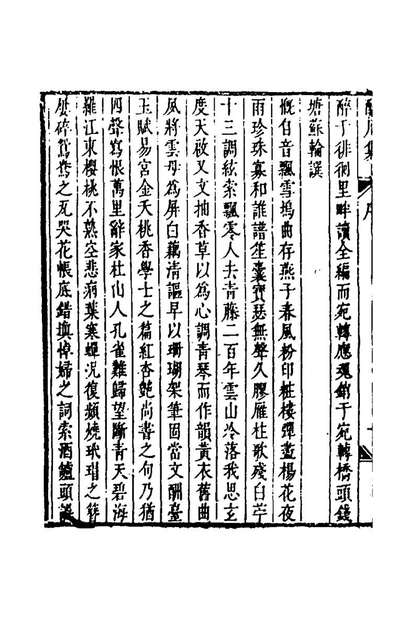 醉于徘徊里畔讀全編而宛轉應魂銷于宛轉橋頭錢
塘蘇輪譔
慨自音飄雪塢曲存燕子春風粉印粧樓彈盡楊花夜
雨珍珠寡和誰譜笙囊寶瑟無聲久膠雁柱歌殘白苧
十三調絃索飄零人去青藤二百年雲山冷落我思玄
度天啟又文抽香草以為心調青琴而作韻黃衣舊曲
風將雲母為屏白藕清謳早以珊瑚架筆固當文酬臺
玉賦易宮金夭桃香學士之篇紅杏艶尚書之句乃猶
四聲寫恨萬里辭家杜山人孔雀難歸望斷青天碧海
羅江東櫻桃不熟空悲病葉寒蟬況復頻燒玳瑁之簪
碎鴛鴦之瓦哭花帳底錯填悼婦之詞索酒鑪頭